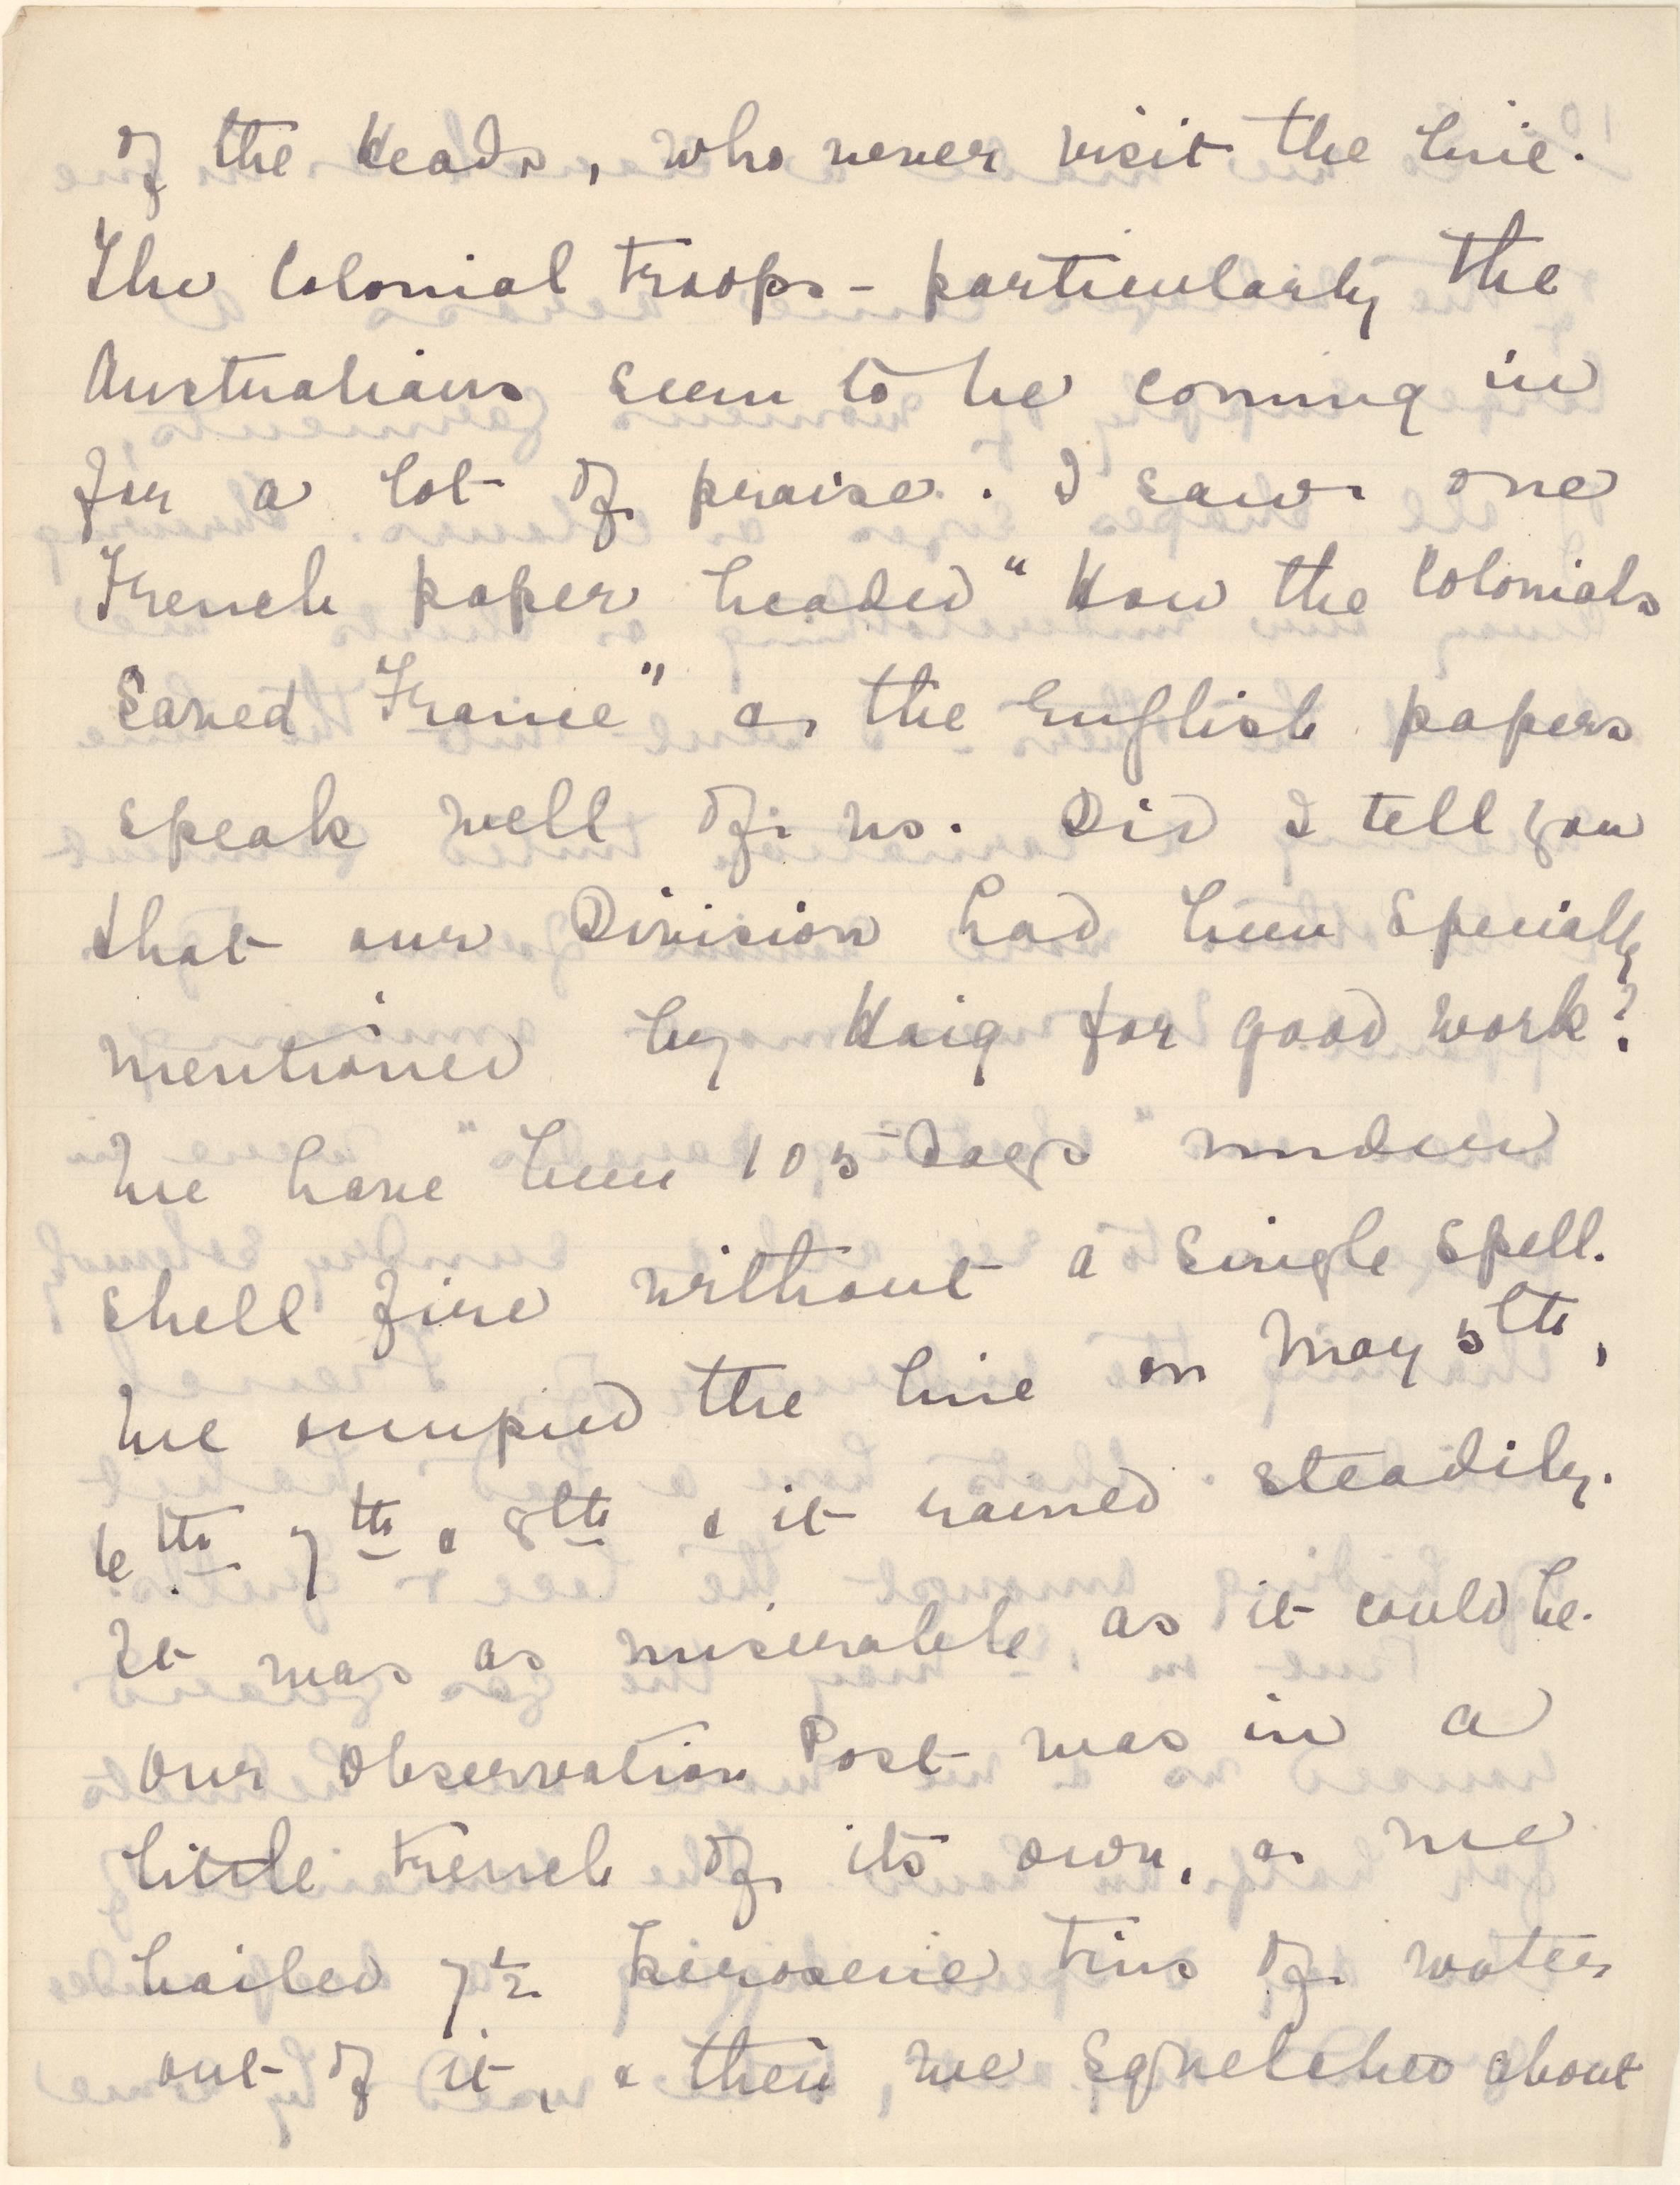 of the Heads, who never visit the line.
The Colonial troops - particularly the
Australians seem to be coming in
for a lot of praise. I saw one
French paper headed "How the Colonials
Saved France" & the English papers
speak well of us. Did I tell you
that our Division had been specially
mentioned by Haig for good work?
We have been 105 days under
shell fire without a single spell.
We occupied the line on May 5th,
6th 7th & 8th & it rained steadily.
It was as miserable as it could be.
Our Observation Post was in a
little trench of its own, & we
bailed 7½ kerosene tins of water
out of it, & then, we squelched about